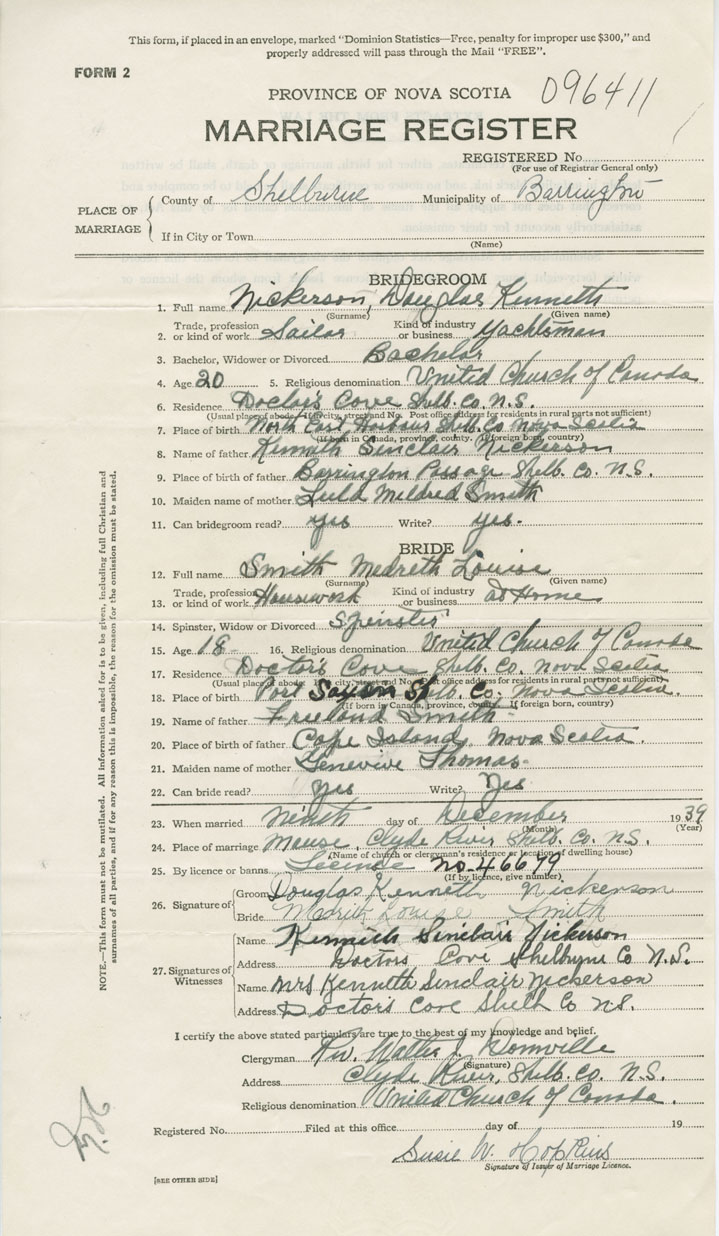 This form, if placed in an envelope, marked "Dominion Statistics—Free, penalty for improper use $300," and
properly addressed will pass through the Mail "FREE".
FORM 2
PROVINCE OF NOVA SCOTIA 096411
MARRIAGE REGISTER
REGISTERED No.
(For use of Registrar General only)
PLACE OF MARRIAGE
County of Shelburne Municipality of Barrington
If in City or Town
(Name)
BRIDEGROOM
1. Full name Nickerson, Douglas Kenneth
(Surname) (Given name)
2. Trade, profession or kind of work Sailor Kind of industry or business Yachtsman
3. Bachelor, Widower or Divorced Bachelor
4. Age 20 5. Religious denomination United Church of Canada
6. Residence Doctor's Cove Shelb. Co. N.S.
(Usual place of abode. If in city, street and No. Post office address for residents in rural parts not sufficient)
7. Place of birth North East Harbour Shelb. Co. Nova Scotia
(If born in Canada, province, county. If foreign born, country)
8. Name of father Kenneth Sinclair Nickerson
9. Place of birth of father Barrington Passage Shelb. Co. N.S.
10. Maiden name of mother Mildred Smith
11. Can bridegroom read? yes Write? yes.
BRIDE
12. Full name Smith Louise
(Surname) (Given name)
13. Trade, profession or kind of work Housework Kind of industry or business at Home
14. Spinster, Widow or Divorced Spinster
15. Age 18 16. Religious denomination United Church of Canada
17. Residence Doctor's Cove Shelb. Co. Nova Scotia
(Usual place of abode. If in city, street and No. Post office address for residents in rural parts not sufficient)
18. Place of birth Port Saxon Shelb. Co. Nova Scotia.
(If born in Canada, province, county. If foreign born, country)
19. Name of father Freeland Smith
20. Place of birth of father Cape Island, Nova Scotia.
21. Maiden name of mother Genevive Thomas.
22. Can bride read? Yes Write? Yes
23. When married Ninth day of December 1939
(Month) (Year)
24. Place of marriage Manse, Clyde River Shelb. Co. N.S.
(Name of church or clergyman's residence or location of dwelling house)
25. By licence or banns License no. 46679
(If by licence, give number)
26. Signature of
Groom Douglas Kenneth Nickerson
Bride Louise Smith
27. Signatures of Witnesses
Name Kenneth Sinclair Nickerson
Address Doctors Cove Shelburne Co N.S.
Name Mrs Kenneth Sinclair Nickerson
Address Doctor's Cove Shelb Co N.S.
I certify the above stated particulars are true to the best of my knowledge and belief.
Clergyman Rev. Walter
(Signature)
Address Clyde River, Shelb. Co. N.S.
Religious denomination United Church of Canada.
Registered No. Filed at this office day of 19
Susie W. Hopkins
Signature of Issuer of Marriage Licence.
[SEE OTHER SIDE]
NOTE.—This form must not be mutilated. All information asked for is to be given, including full Christian and
surnames of all parties, and if for any reason this is impossible, the reason for the omission must be stated.